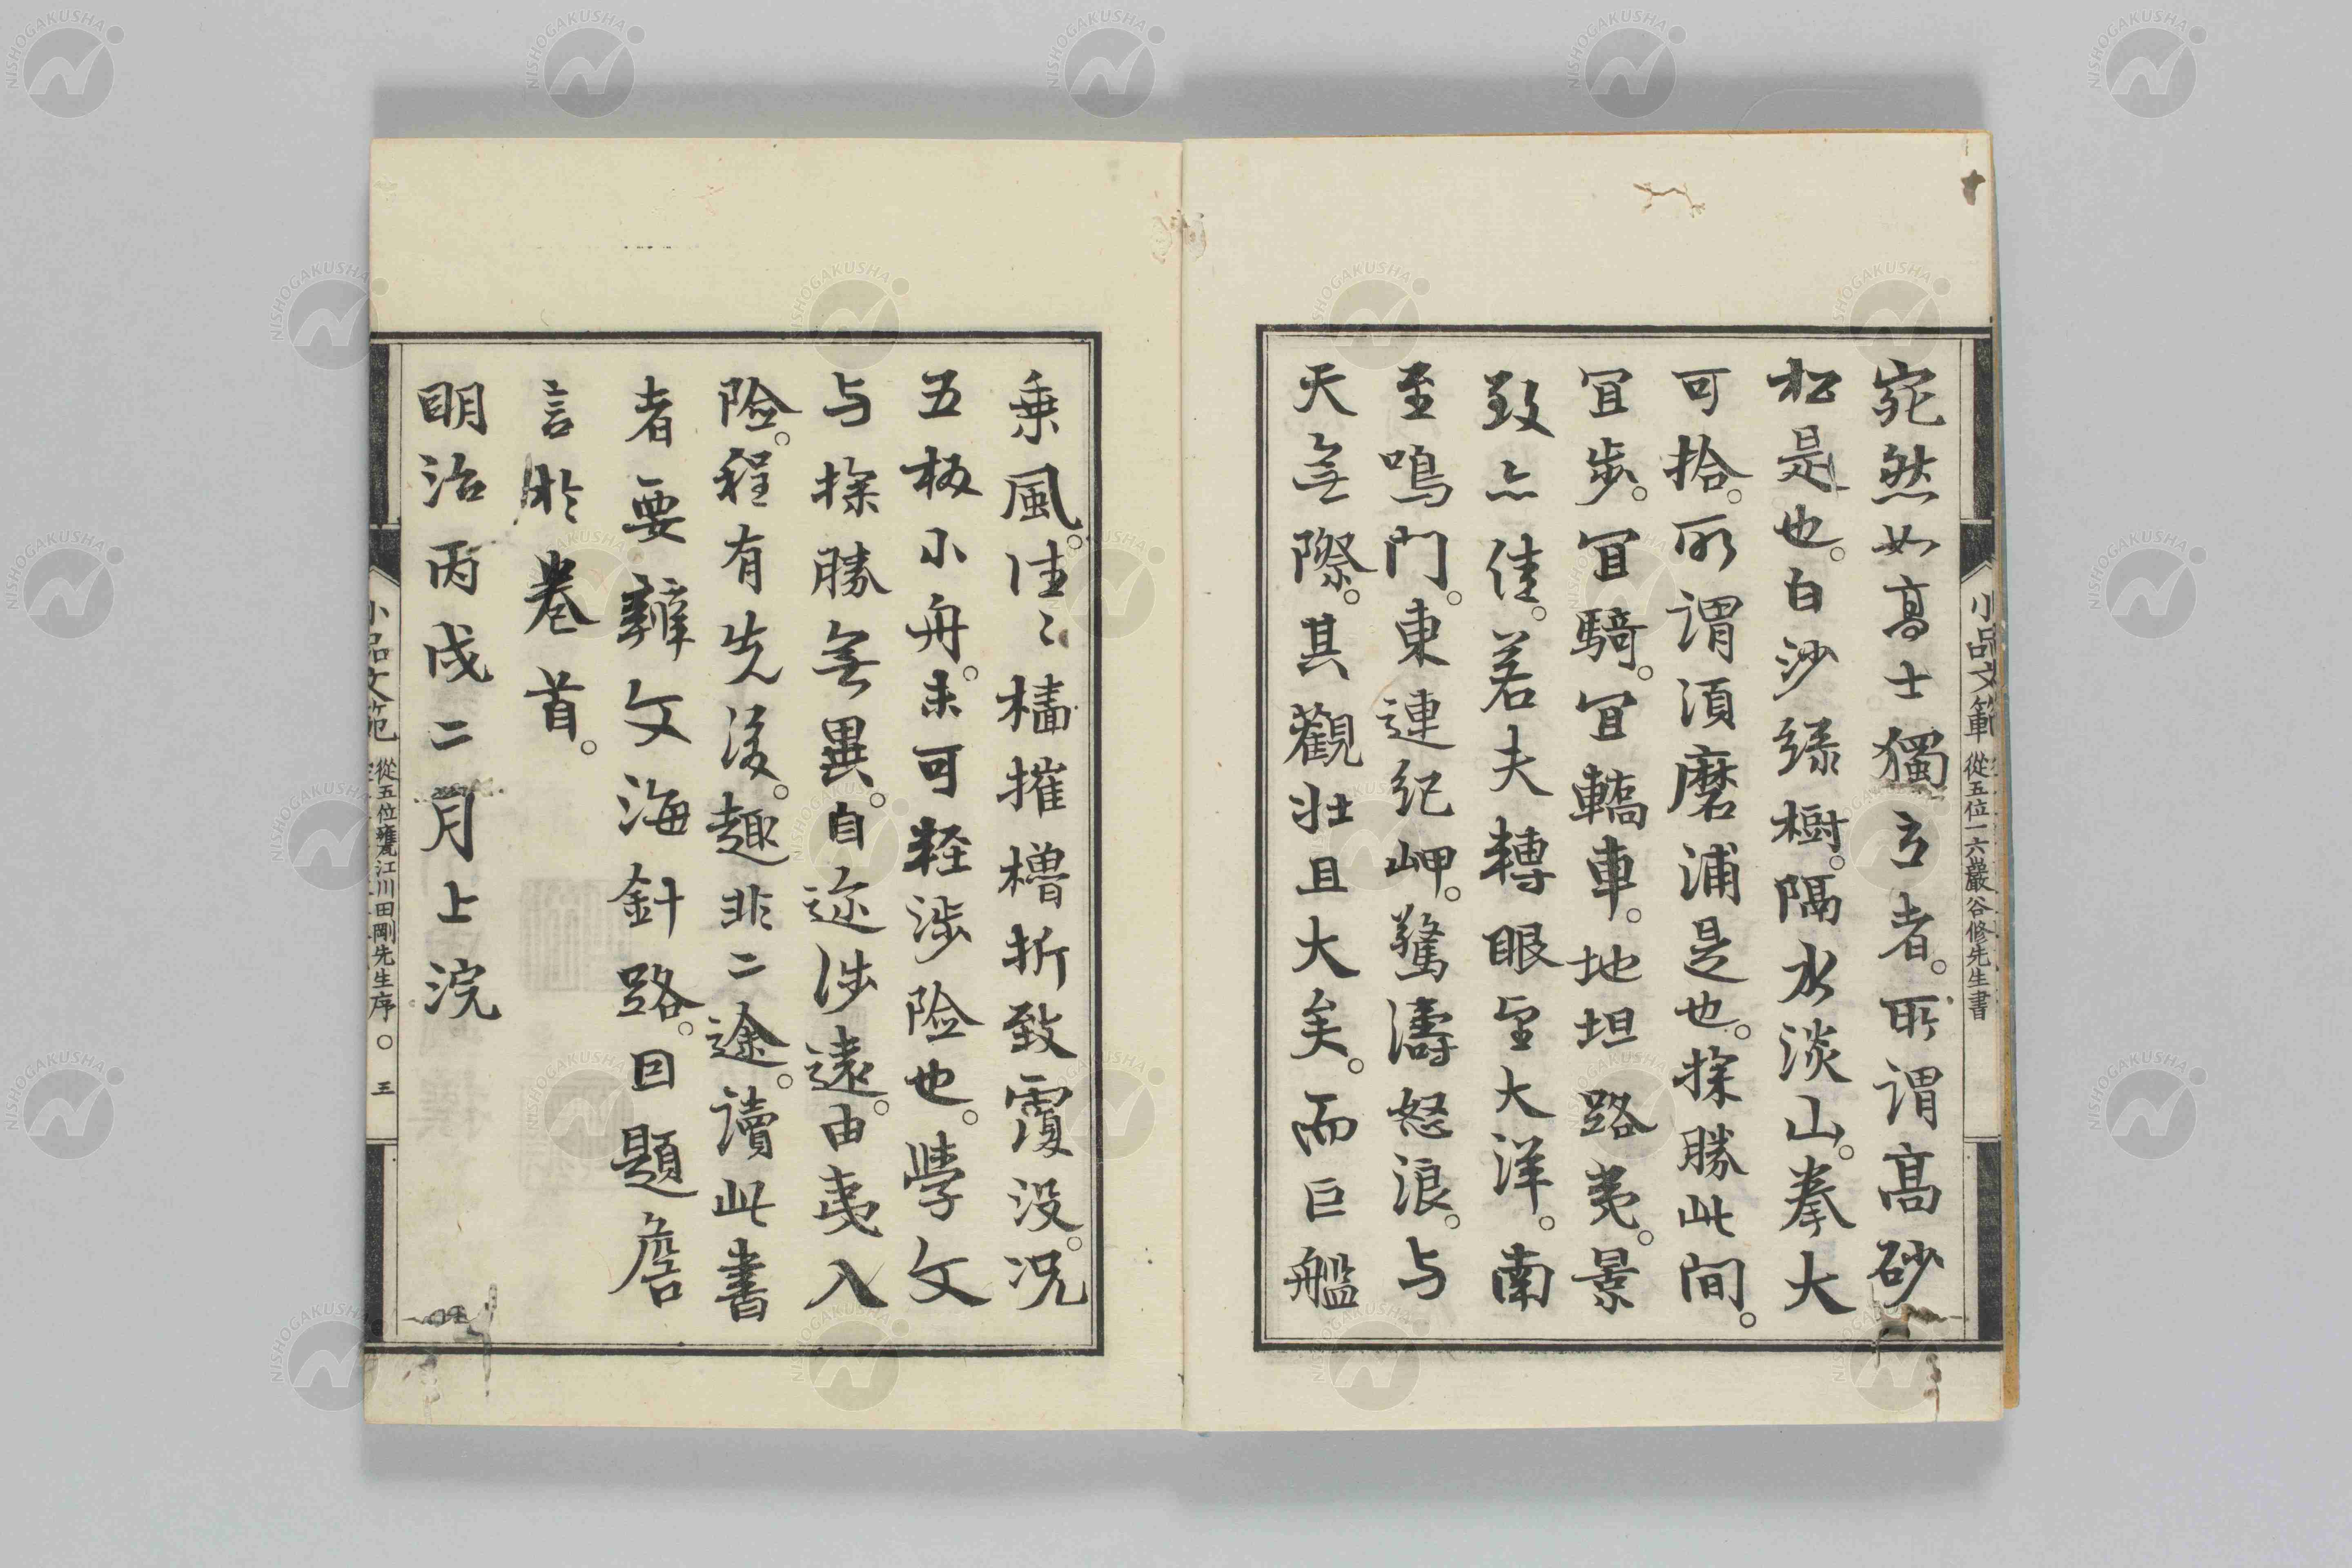 宛然如髙士獨立者。所謂髙砂
松是也。白沙緑樹。隔水淡山。拳大
可拾。所謂須磨浦是也。探勝此間。
宜歩。宜騎。宜轎車。地坦路夷。景
致亦佳。若夫轉眼望大洋。南
至鳴門。東連紀岬。驚濤怒浪。与
天無際。其觀壮且大矣。而巨艦
小品文範 從五位一六巖谷修先生書
乗風。往〻檣摧櫓折致覆没。况
五板小舟。未可軽渉険也。學文
与探勝無異。自迩渉遠。由夷入
険。程有先後。趣非二途。讀此書
者要辨文海針路。因題詹
言於巻首。
明治丙戌二月上浣
小品文範 從五位甕江川田剛先生序 〇 三
NISHOGAKUSHA